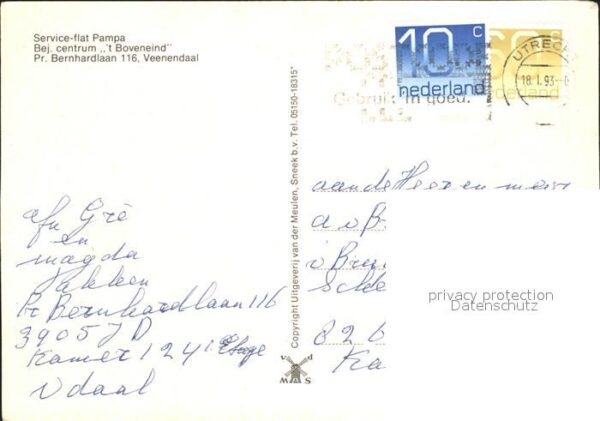 Service-flat Pampa
Bej. centrum „'t Boveneind"
Pr. Bernhardlaan 116, Veenendaal
10 c
nederland
60 c
nederland
UTRECH
18.1.93
Gebruik 'm goed.
Copyright Uitgeverij van der Meulen, Sneek b.v. Tel. 05150-18315*
afn Gré
en
magda
Pr Bernhardlaan 116
3905 JD
Kamer 124 1 Etage
Vdaal
aan de Heer en mevr
d v B
v Bru
Sch
826
Ka
privacy protection
Datenschutz
v d
M S